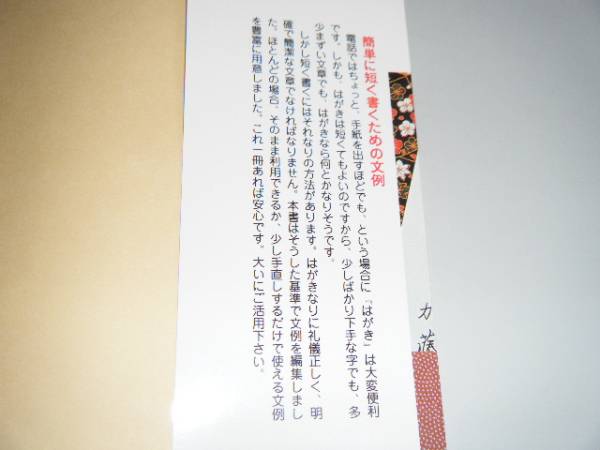 簡単に短く書くための文例
電話ではちょっと、手紙を出すほどでも、という場合に「はがき」は大変便利
です。しかも、はがきは短くてもよいのですから、少しばかり下手な字でも、多
少まずい文章でも、はがきなら何とかなりそうです。
しかし短く書くにはそれなりの方法があります。はがきなりに礼儀正しく、明
確で簡潔な文章でなければなりません。本書はそうした基準で文例を編集しまし
た。ほとんどの場合、そのまま利用できるか、少し手直しするだけで使える文例
を豊富に用意しました。これ一冊あれば安心です。大いにご活用下さい。